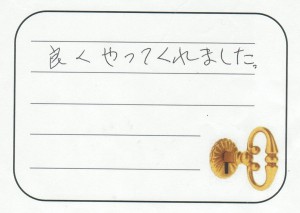 良くやってくれました。